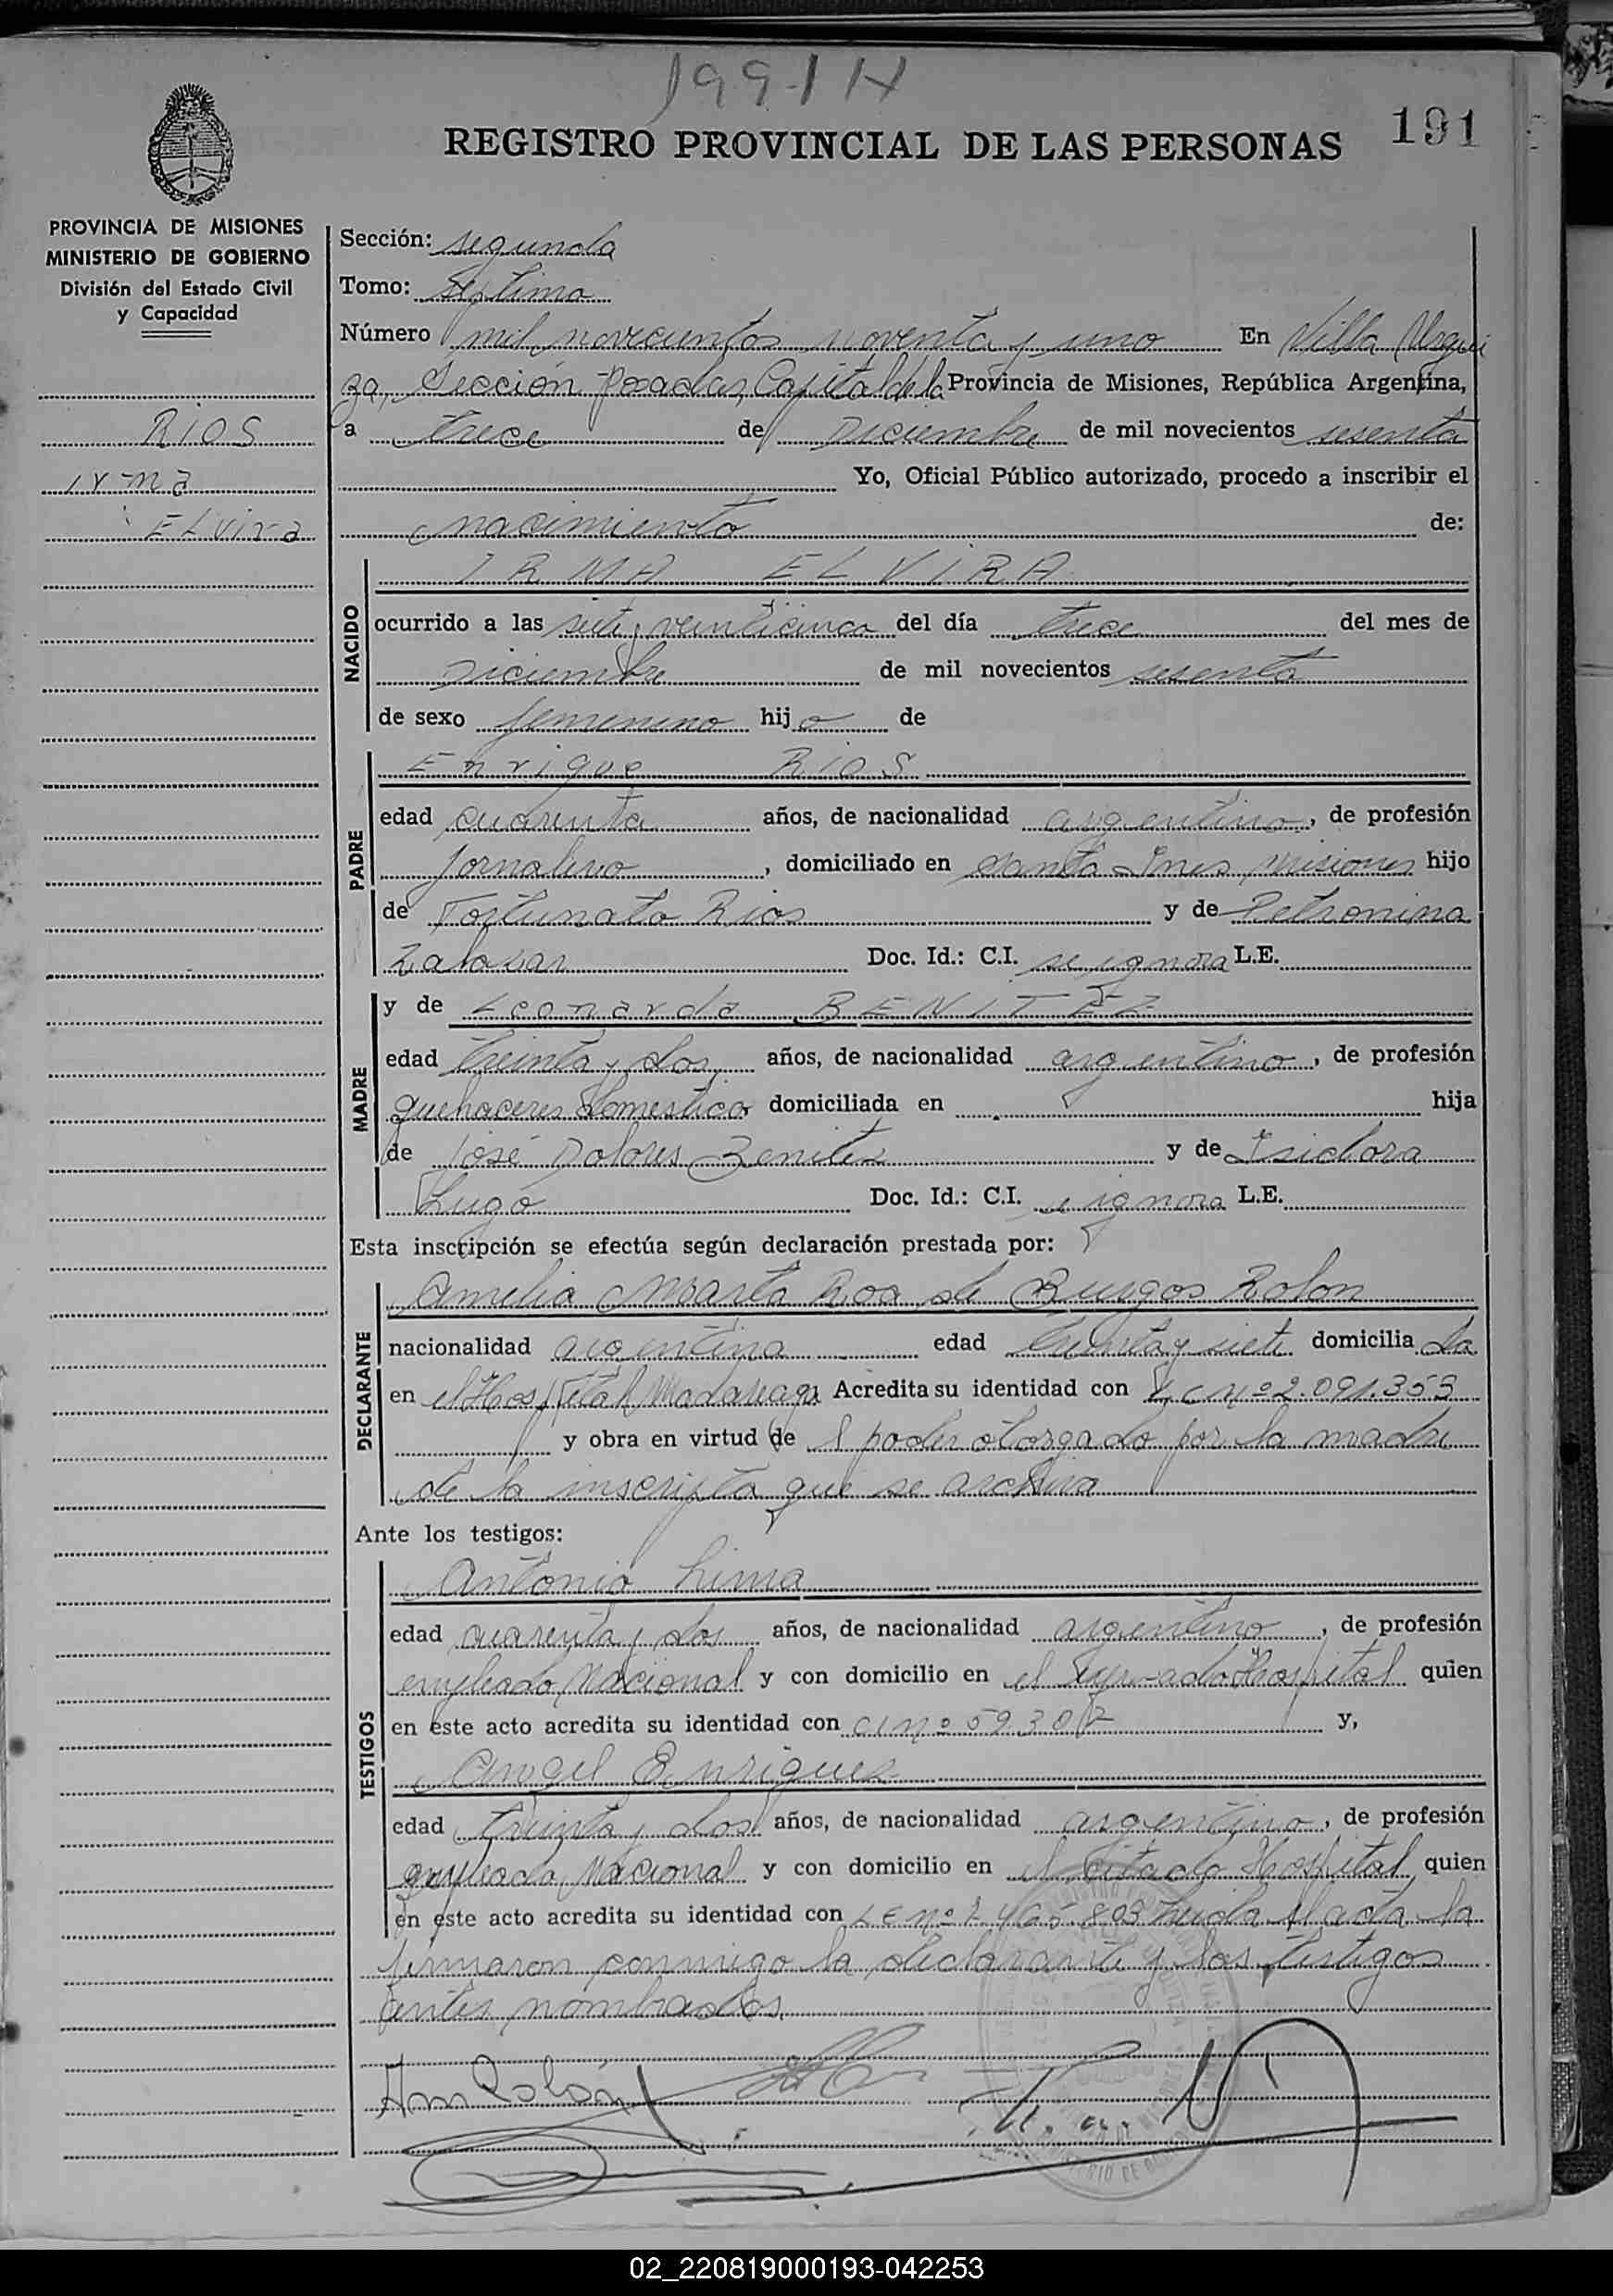 1991 H
191
REGISTRO PROVINCIAL DE LAS PERSONAS
PROVINCIA DE MISIONES
MINISTERIO DE GOBIERNO
División del Estado Civil
y Capacidad
RIOS
Irma
ELvira
Sección: segunda
Tomo: Septimo
Número mil novecientos noventa y uno En Villa Urqui
za, Sección Posadas, Capital de la Provincia de Misiones, República Argentina,
a trece de Diciembre de mil novecientos sesenta
Yo, Oficial Público autorizado, procedo a inscribir el
nacimiento de:
IRMA ELVIRA
NACIDO
ocurrido a las siete y veinticinco del día trece del mes de
Diciembre de mil novecientos sesenta
de sexo femenino hija de
PADRE
Enrique RIOS
edad cuarenta años, de nacionalidad argentino, de profesión
jornalero, domiciliado en Santa Ines Misiones hijo
de Fortunato Rios y de Petronina
Zalasar Doc. Id.: C.I. se ignora L.E.
MADRE
y de Leonarda BENITEZ
edad treinta y dos años, de nacionalidad argentino, de profesión
quehaceres domestico domiciliada en hija
de José Dolores Benitez y de Isidora
Lugo Doc. Id.: C.I. se ignora L.E.
Esta inscripción se efectúa según declaración prestada por:
DECLARANTE
Amelia Marta Roa de Burgos Rolon
nacionalidad argentina edad treinta y siete domicilia da
en el Hospital Madariaga Acredita su identidad con L C Nº 2.091.353
y obra en virtud de l poder otorgado por la madre
de la inscripta que se archiva
Ante los testigos:
TESTIGOS
Antonio Lima
edad cuarenta y dos años, de nacionalidad argentino, de profesión
empleado Nacional y con domicilio en el Hospital quien
en este acto acredita su identidad con C I Nº 59307 y,
Angel Enriquez
edad treinta y dos años, de nacionalidad argentino, de profesión
empleado Nacional y con domicilio en el citado Hospital quien
en este acto acredita su identidad con L E Nº 7.465.803 Leida el acta la
firmaron conmigo la declarante y los testigos
antes nombrados.
Am Rolón
02_220819000193-042253